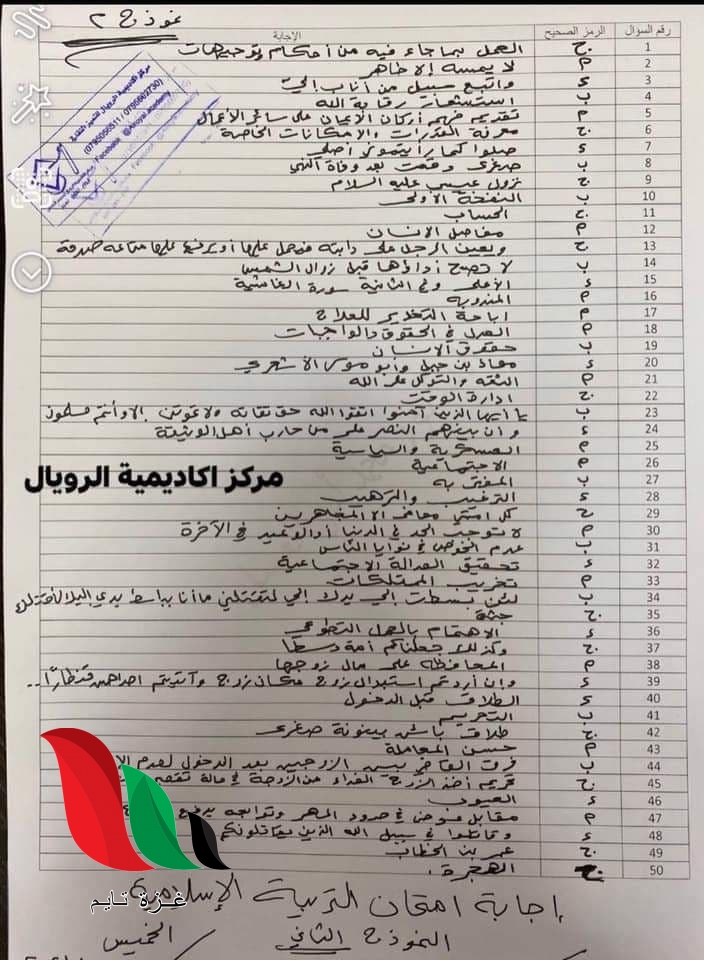 نموذج ٢
رقم السؤال الرمز الصحيح الإجابة
1 ج العمل بما جاء فيه من أحكام وتوجيهات
2 م لا يمسه إلا طاهر
3 ء واتبع سبيل من أناب إلي
4 ب استشعار رقابة الله
5 م تقديم فهم أركان الإيمان على سائر الأعمال
6 ج معرفة القدرات والإمكانات الخاصة
7 ء صلوا كما رأيتموني أصلي
8 ب صغرى وقعت بعد وفاة النبي
9 ج نزول عيسى عليه السلام
10 ب النفخة الأولى
11 ج الحساب
12 م مفاصل الإنسان
13 ج ويعين الرجل على دابته فيحمل عليها أو يرفع عليها متاعه صدقة
14 ب لا تصح أداؤها قبل زوال الشمس
15 ء الأعلى وفي الثانية سورة الغاشية
16 م المندوبة
17 م إباحة التخدير للعلاج
18 م العدل في الحقوق والواجبات
19 ب حقوق الإنسان
20 ء معاذ بن جبل وأبو موسى الأشعري
21 م الثقة والتوكل على الله
22 ج إدارة الوقت
23 ب يا أيها الذين آمنوا اتقوا الله حق تقاته ولا تموتن إلا وأنتم مسلمون
24 ء وان بينهم النصر على من حارب أهل الوثيقة
25 م العسكرية والسياسية
26 م الاجتماعية
27 ب المفتى به
28 ء الترغيب والترهيب
29 ج كل أمتي معافى إلا المجاهرين
30 م لا توجب الحد في الدنيا أو الوعيد في الآخرة
31 ب عدم الخوض في نوايا الناس
32 ء تحقيق العدالة الاجتماعية
33 م تخريب الممتلكات
34 ب لئن بسطت إلي يدك لتقتلني ما أنا بباسط يدي إليك لأقتلك
35 ج جثة
36 ء الاهتمام بالعمل التطوعي
37 ج وكذلك جعلناكم أمة وسطا
38 م المحافظة على مال زوجها
39 ء وإن أردتم استبدال زوج مكان زوج وآتيتم إحداهن قنطارًا..
40 ء الطلاق قبل الدخول
41 ب التحريم
42 ج طلاق بائن بينونة صغرى
43 م حسن المعاملة
44 ب فرق القاضي بين الزوجين بعد الدخول لعدم
45 ج تحريم أخذ الزوج الفداء من الزوجة في حالة
46 ء العيوب
47 م مقابل عوض في حدود المهر
48 ء وقاتلوا في سبيل الله الذين يقاتلونكم
49 ج عمر بن الخطاب
50 ج الهجرة.
مركز اكاديمية الرويال
غزة تايم
إجابة امتحان التربية الإسلامية
النموذج الثاني الخميس